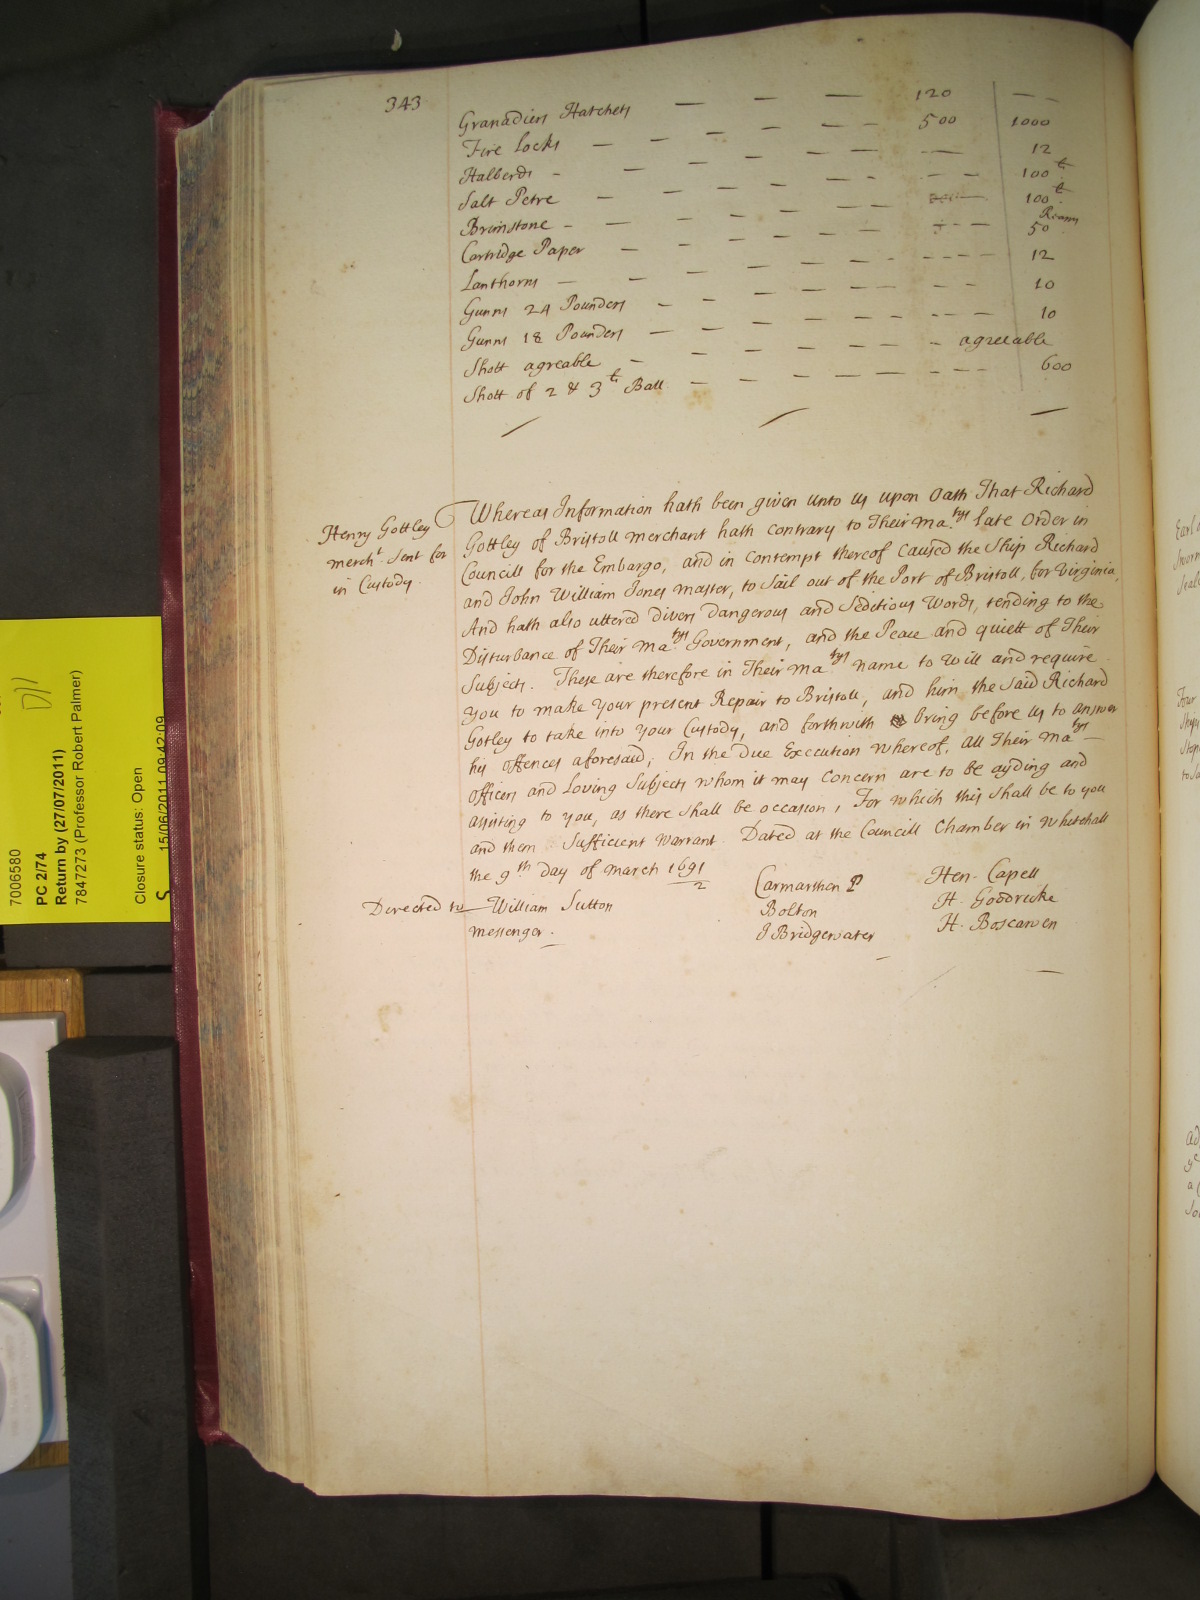 343
Granadiers Hatchets — — — 120 — —
Fire Locks — — — — — 500 1000
Halberds - — — — — — 12
Salt Petre — — — — — - — - 100 li
Brimstone - — — — — — 100 li
Cartridge Paper — — — — — - - — 50 Reams
Lanthorns — — — — — - - - - 12
Gunns 24 Pounders - — — — — 10
Gunns 18 Pounders — — — — — 10
Shott agreable — — — — — - agreeable
Shott of 2 & 3 li Ball — — — — — - - - 600
Henry Gottley
mercht. sent for
in Custody.
Whereas Information hath been given unto us upon Oath That Richard
Gottley of Bristoll merchant hath contrary to Their Ma.tys late Order in
Councill for the Embargo, and in contempt thereof caused the Ship Richard
and John William Jones master, to sail out of the Port of Bristoll, for Virginia,
And hath also uttered divers dangerous and Seditious Words, tending to the
Disturbance of Their Ma.tys Government, and the Peace and quiett of Their
Subjects. These are therefore in Their Ma.tys name to Will and require
you to make your present Repair to Bristoll, and him the said Richard
Gotley to take into your Custody, and forthwith bring before us to answer
his offences aforesaid; In the due Execution whereof, all Their Ma.tys —
officers and Loving Subjects whom it may concern are to be ayding and
assisting to you, as there shall be occasion, For which this shall be to you
and them Sufficient Warrant. Dated at the Councill Chamber in Whitehall
the 9th day of March 1691/2
Directed to William Sutton
Messenger.
Carmarthen P
Bolton
J Bridgewater
Hen. Capell
H. Goodricke
H. Boscawen
7006580
PC 2/74
Return by (27/07/2011)
7847273 (Professor Robert Palmer)
Closure status: Open
15/06/2011 09:42:09
S